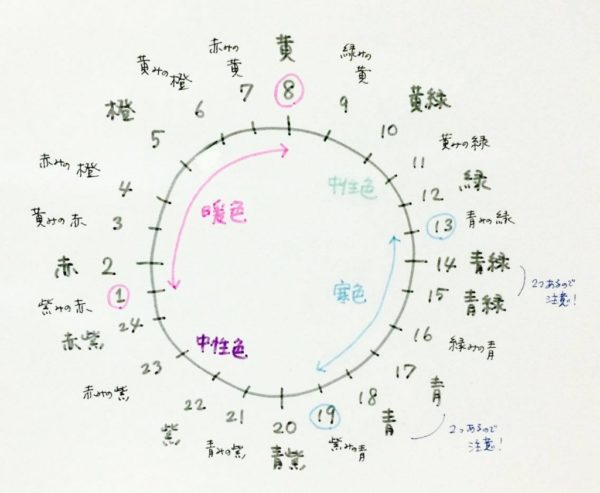 黄
8
緑みの
黄
9
黄緑
10
黄みの緑
11
緑
12
青みの緑
13
青緑
14
青緑
15
2つあるので
注意!
緑みの青
16
青
17
青
18
2つあるので
注意!
紫みの青
19
青紫
20
青みの紫
21
紫
22
赤みの紫
23
赤紫
24
紫みの赤
1
赤
2
黄みの赤
3
赤みの橙
4
橙
5
黄みの橙
6
赤みの
黄
7
暖色
中性色
寒色
中性色